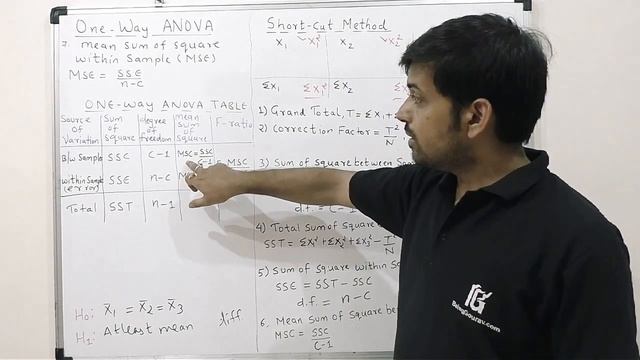 One-Way ANOVA
7. mean sum of square
within sample (MSE)
MSE = SSE
n-C
ONE-WAY ANOVA TABLE
Source of Variation | Sum of Square | degree of freedom | mean sum of square | F-ratio
B/w Sample | SSC | C-1 | MSC = SSC / C-1 | MSC
within Sample (error) | SSE | n-C
Total | SST | n-1
H₀: X̄₁ = X̄₂ = X̄₃
H₁: Atleast mean diff.
Short-cut Method
X₁ X₁² X₂ X₂²
ΣX₁ ΣX₁² ΣX₂ ΣX₂²
1) Grand Total, T = ΣX₁ +
2) Correction Factor = T²/N
3) Sum of square between Sam
d.f. = C-1
4) Total Sum of square
SST = ΣX₁² + ΣX₂² + ΣX₃² - T²/N
5) Sum of Square within S
SSE = SST - SSC
d.f. = n-C
6, Mean Sum of Square be
MSC = SSC
C-1
BeingGourav.com